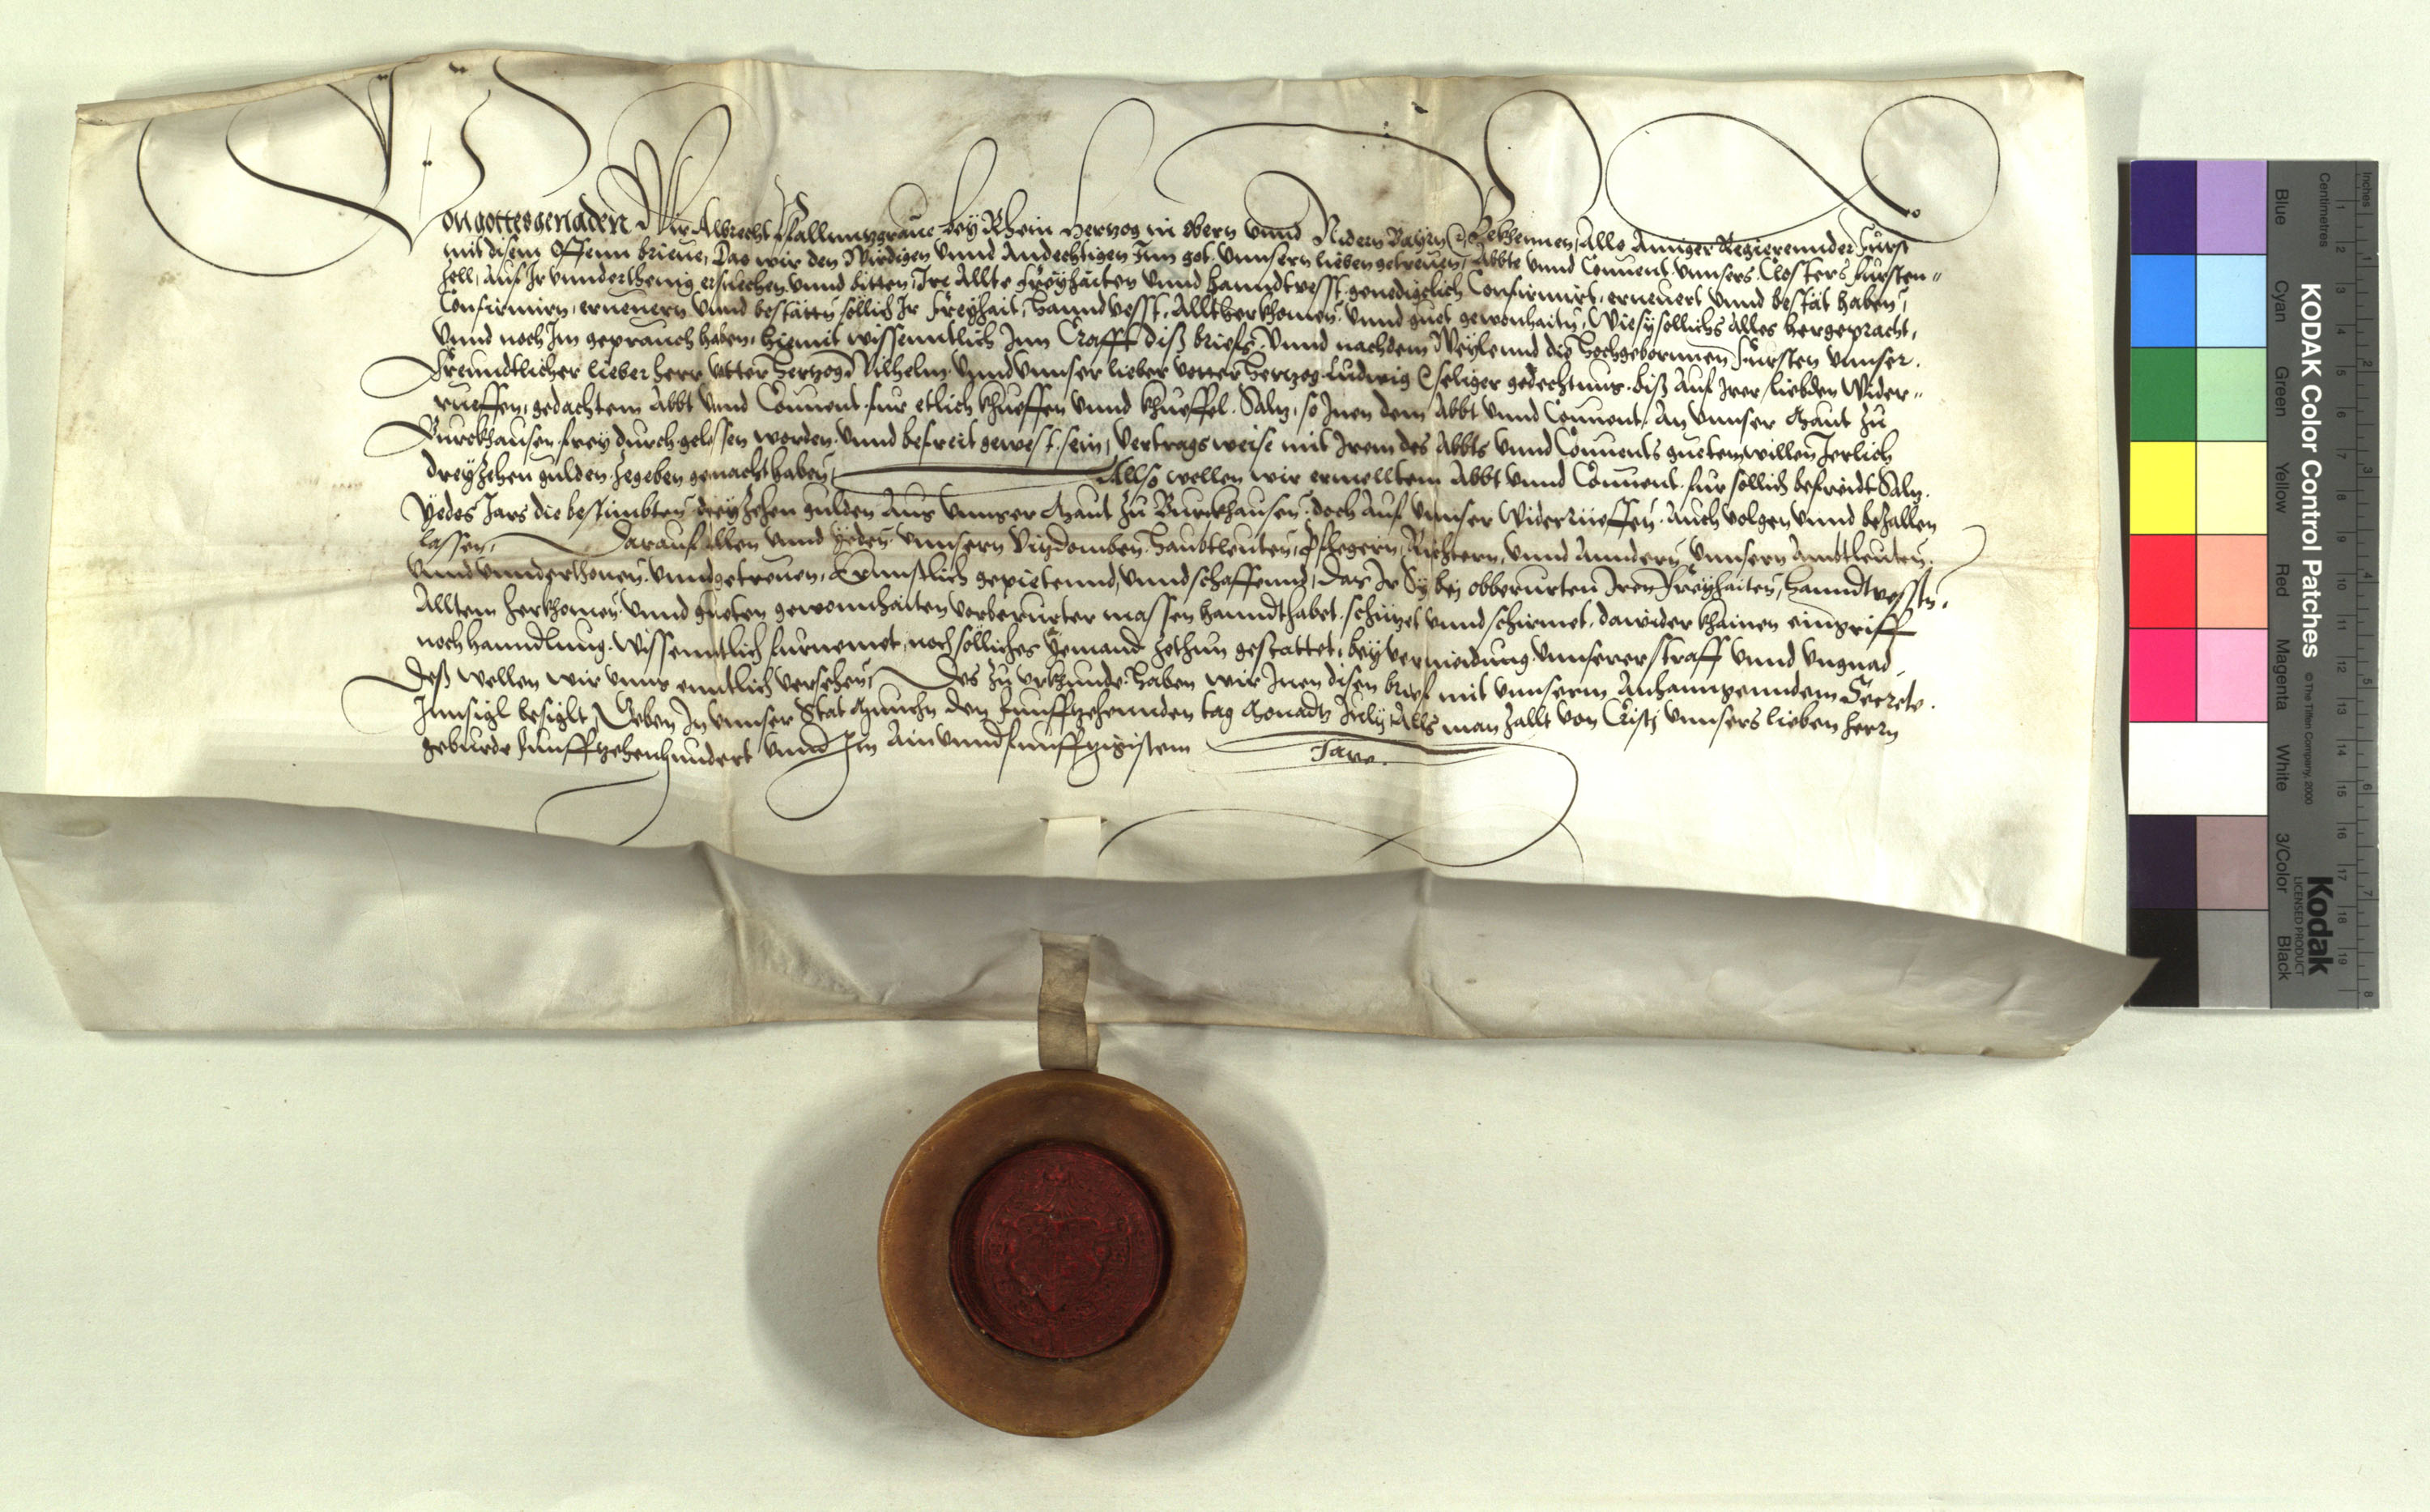 Von gottes genaden Wir Albrecht Pfallnntzgraue bey Rhein Hertzog in Obern vnnd Nidern Bayrn &c. Bekhennen, Alls Ainiger Regierennder Fürst
mit disem Offenn brieue, Das wir den Wirdigen vnnd Andechtigen Inn got vnnsern lieben getreuen, Abbte vnnd Conuent vnnsers Closters Fürsten„
zell, auf Ir vnnderthenig ersuechen vnnd bitten, Ire Allte Freyhaiten vnnd hanndtvesst genedigclich Confirmirt, erneuert vnnd bestät haben,
Confirmirn, erneuern vnnd bestätten söllich Ir Freyhait, Hanndvesst, Alltherkhomen vnnd guet gewonhaiten, Wie sy söllichs Alles hergepracht,
vnnd noch Im geprauch haben, hiemit wissenntlich Inn Crafft diß briefs, Vnnd nachdem Weylennd die Hochgebornnen Fürsten vnnser
Freundtlicher lieber herr vatter Hertzog Wilhelm vnnd vnnser lieber vetter Hertzog Ludwig &c. seliger gedechtnus, biß auf Irer liebden Wider„
rueffen, gedachtem Abbt vnnd Conuent für etlich khueffen vnnd khueffel Saltz, so Inen dem Abbt vnnd Conuent An vnnser Maut zu
Burckhausen frey durch gelassen worden vnnd befreit gewest sein, Vertragsweise mit Irem des Abbts vnnd Conuents guetem willen Jerlich
dreyzehen gulden zegeben gemacht haben, Allso wellen wir ermelltem Abbt vnnd Conuent für söllich befreidt Saltz
Yedes Jars die bestimbten dreyzehen gulden Aus vnnser Maut zu Burckhausen doch auf vnnser widerrüeffen, Auch volgen vnnd bezallen
lassen, Darauf Allen vnnd yeden vnnsern Vitzdomben Haubtleuten, Pflegern, Richtern, vnnd Anndern vnnsern Ambtleuten
vnnd vnnderthonen vnnd getreuen, Ernnstlich gepietennd, vnnd schaffennd, Das Ir Sy bey obberürten Iren Freyhaiten, Hanndtvessten,
Alltem herkhomen vnnd gueten gewonnhaiten vorberürter massen hanndthabet, schützet vnnd schirmet, dawider khainen eingriff
noch hanndlung wissenntlich fürnemet, noch sölliches Yemand zethun gestattet, bey vermeidung vnnserer straff vnnd vngnad,
Deß wellen wir vnns enntlich versehen, Des zu vrkhunde haben wir Inen disen brief mit vnnserm Anhanngenndem Secrete
Innsigl besiglt, Geben In vnnser Stat München den Funffzehennden tag Monadts July, Alls man zallt von Cristj vnnsers lieben herrn
geburde funffzehenhundert vnnd Im Ainvnndfunffzigistem Jare.
KODAK Color Control Patches
© The Tiffen Company, 2000
Kodak
LICENSED PRODUCT
Blue Cyan Green Yellow Red Magenta White 3/Color Black
Inches 1 2 3 4 5 6 7 8
Centimetres 1 2 3 4 5 6 7 8 9 10 11 12 13 14 15 16 17 18 19